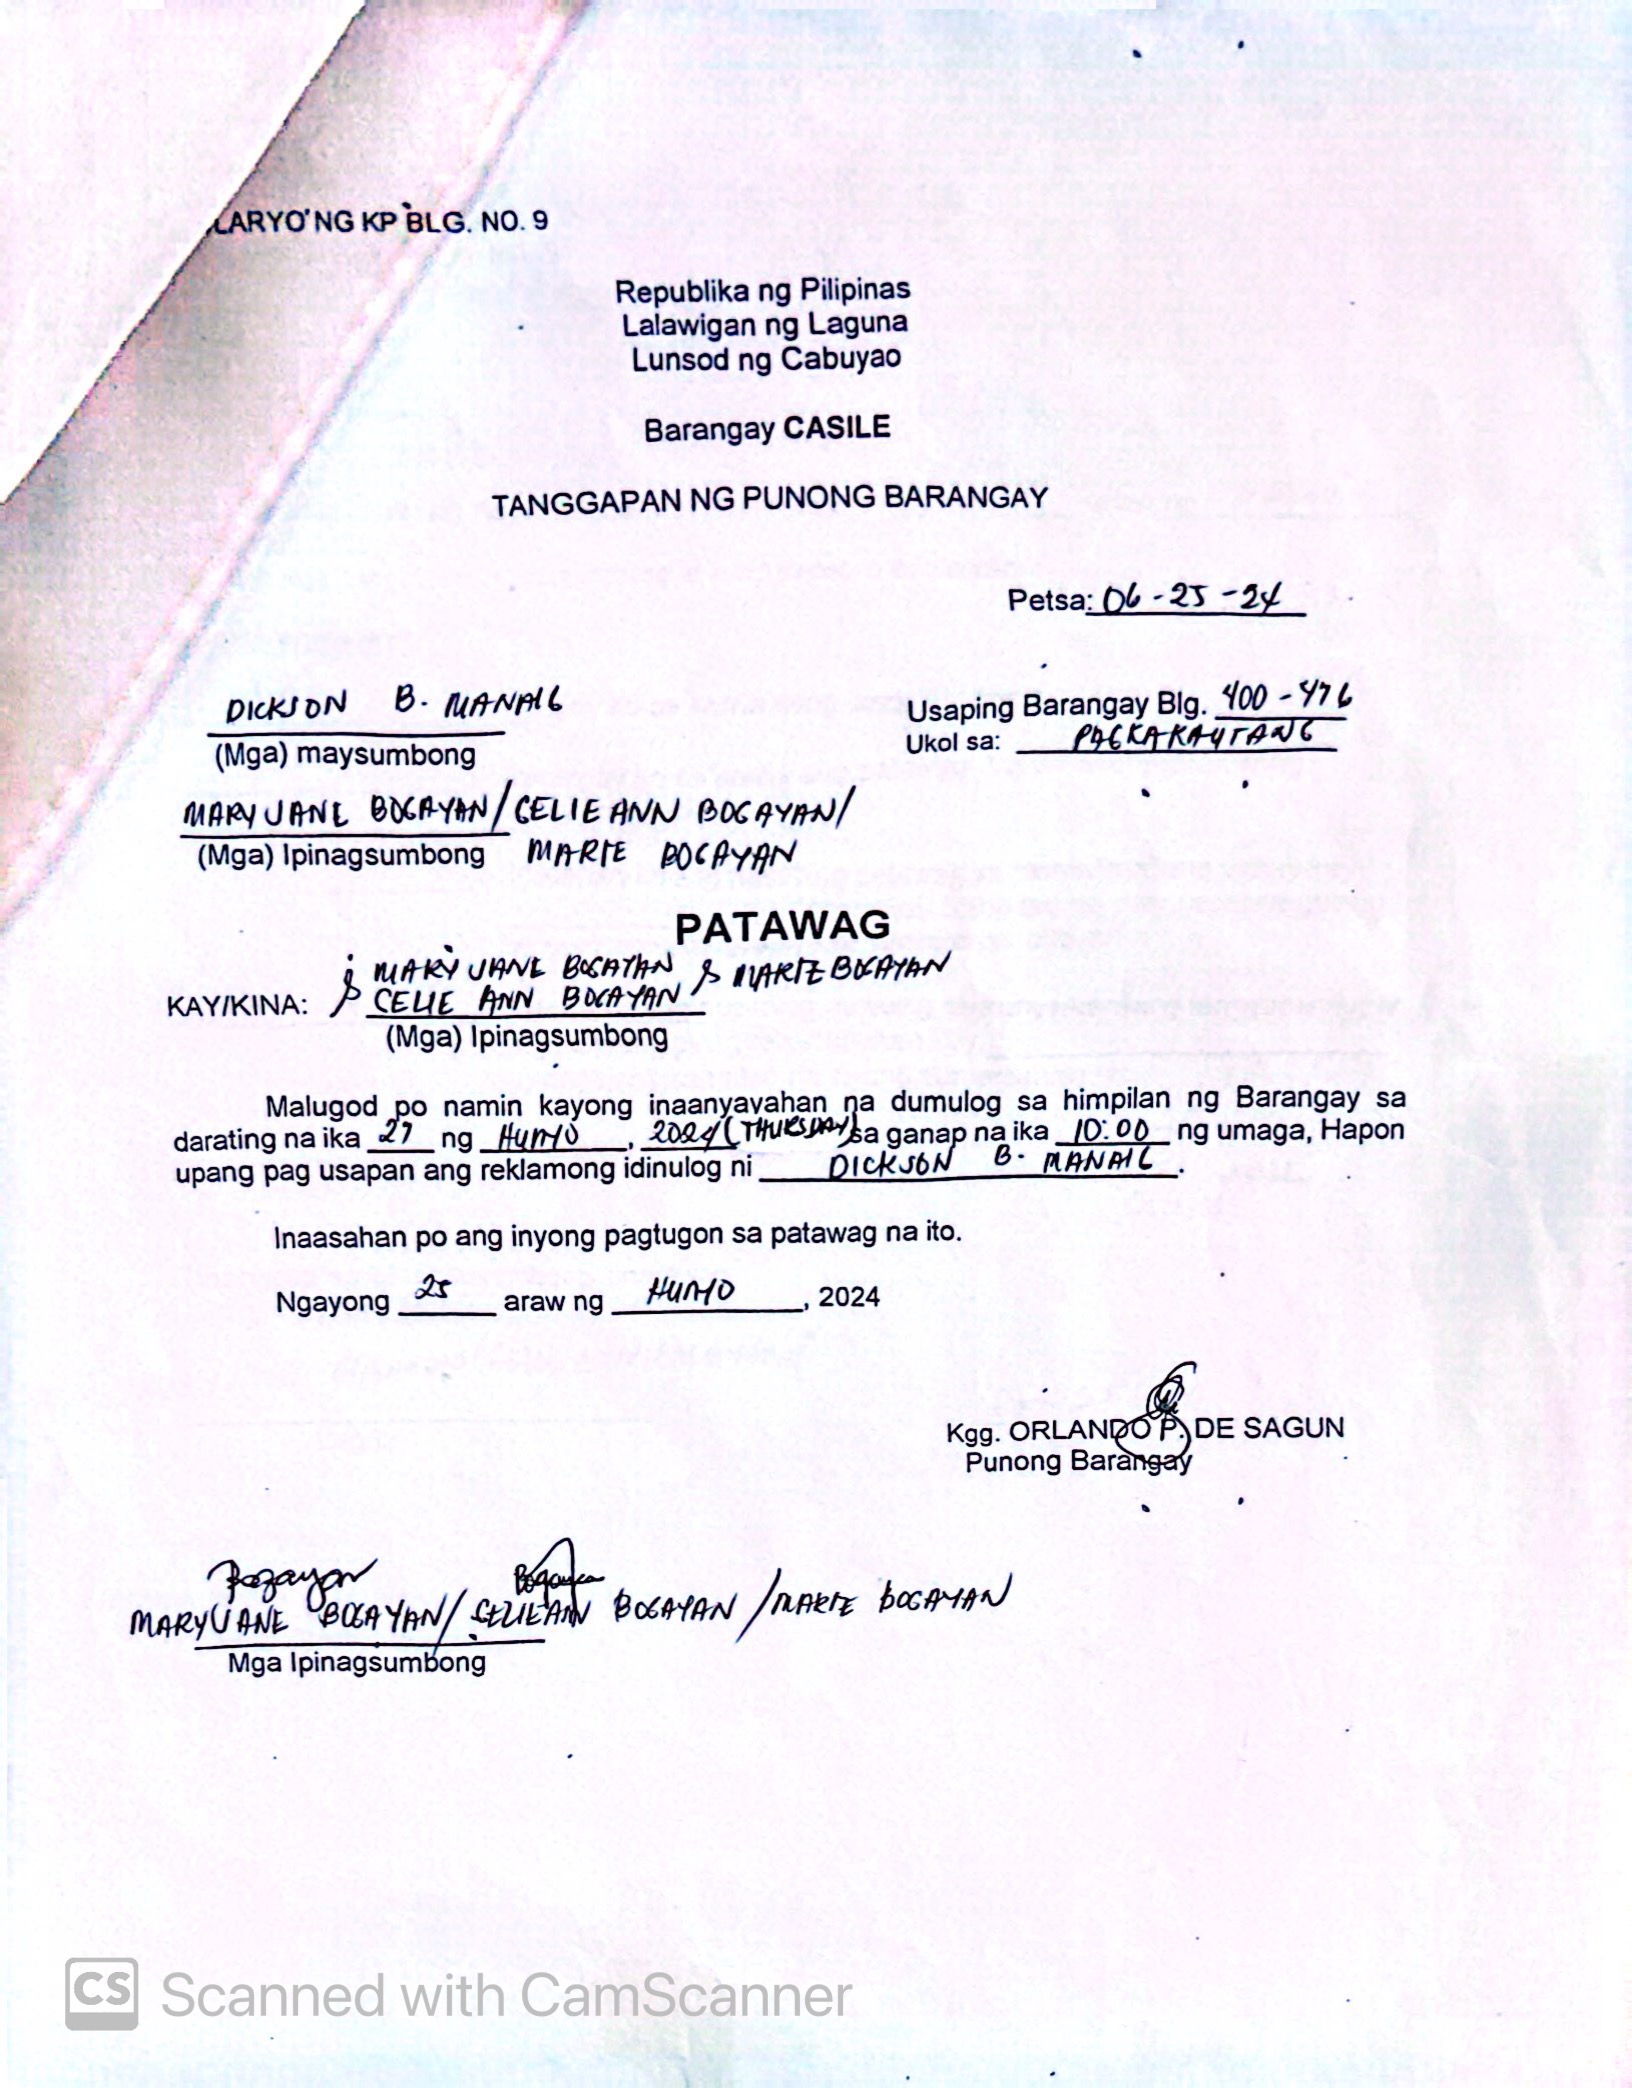 LARYO'NG KP BLG. NO. 9
Republika ng Pilipinas
Lalawigan ng Laguna
Lunsod ng Cabuyao
Barangay CASILE
TANGGAPAN NG PUNONG BARANGAY
Petsa: 06-25-24
DICKSON B. MANAIG
(Mga) maysumbong
Usaping Barangay Blg. 400-476
Ukol sa: PAGKAKAUTANG
MARY JANE BOGAYAN/CELIE ANN BOGAYAN/
(Mga) Ipinagsumbong MARIE BOGAYAN
PATAWAG
MARY JANE BOGAYAN & MARIE BOGAYAN
KAY/KINA: & CELIE ANN BOGAYAN
(Mga) Ipinagsumbong
Malugod po namin kayong inaanyayahan na dumulog sa himpilan ng Barangay sa
darating na ika 27 ng HUNYO, 2024 (THURSDAY) sa ganap na ika 10:00 ng umaga, Hapon
upang pag usapan ang reklamong idinulog ni DICKSON B. MANAIG.
Inaasahan po ang inyong pagtugon sa patawag na ito.
Ngayong 25 araw ng HUNYO, 2024
Kgg. ORLANDO P. DE SAGUN
Punong Barangay
Bogayan Bogayan
MARY JANE BOGAYAN/CELIE ANN BOGAYAN/MARIE BOGAYAN
Mga Ipinagsumbong
CS Scanned with CamScanner